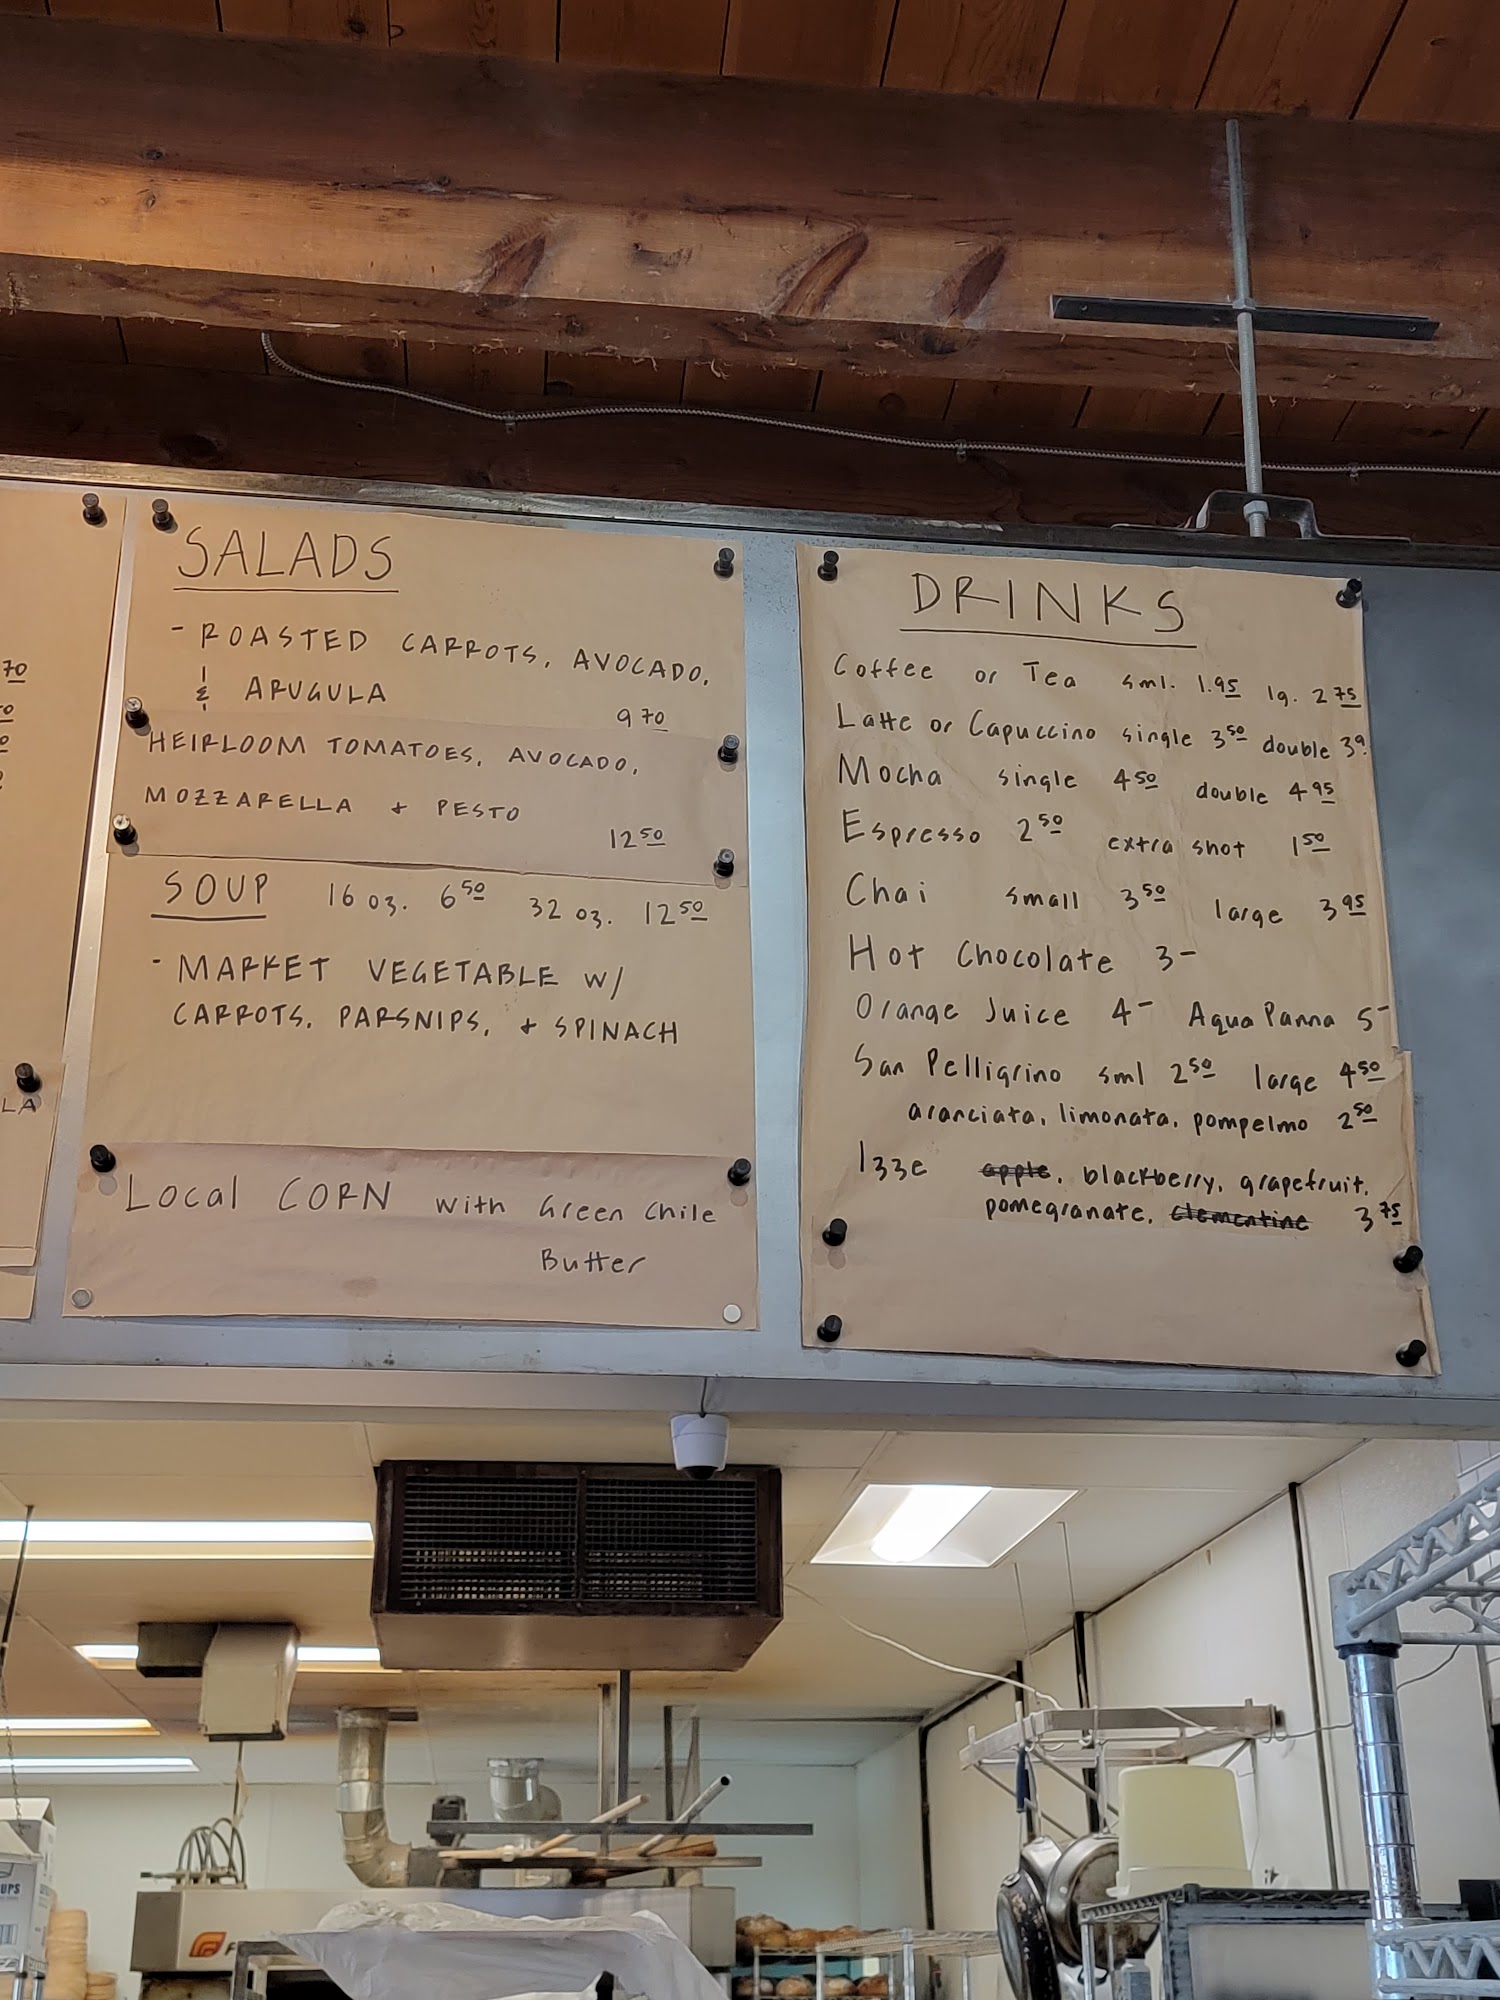 70
SALADS
- ROASTED CARROTS, AVOCADO,
& ARUGULA
9 70
HEIRLOOM TOMATOES, AVOCADO,
MOZZARELLA + PESTO
12 50
SOUP 16 oz. 6 50 32 oz. 12 50
- MARKET VEGETABLE W/
CARROTS, PARSNIPS, + SPINACH
LA
Local CORN with Green Chile
Butter
DRINKS
Coffee or Tea sml. 1.95 lg. 2 75
Latte or Capuccino single 3 50 double
Mocha single 4 50 double 4 95
Espresso 2 50 extra shot 1 50
Chai small 3 50 large 3 95
Hot Chocolate 3-
Orange Juice 4- Aqua Panna 5-
San Pelligrino sml 2 50 large 4 50
aranciata, limonata, pompelmo 2 50
Izze apple, blackberry, grapefruit,
pomegranate, clementine 3 75
UPS
F